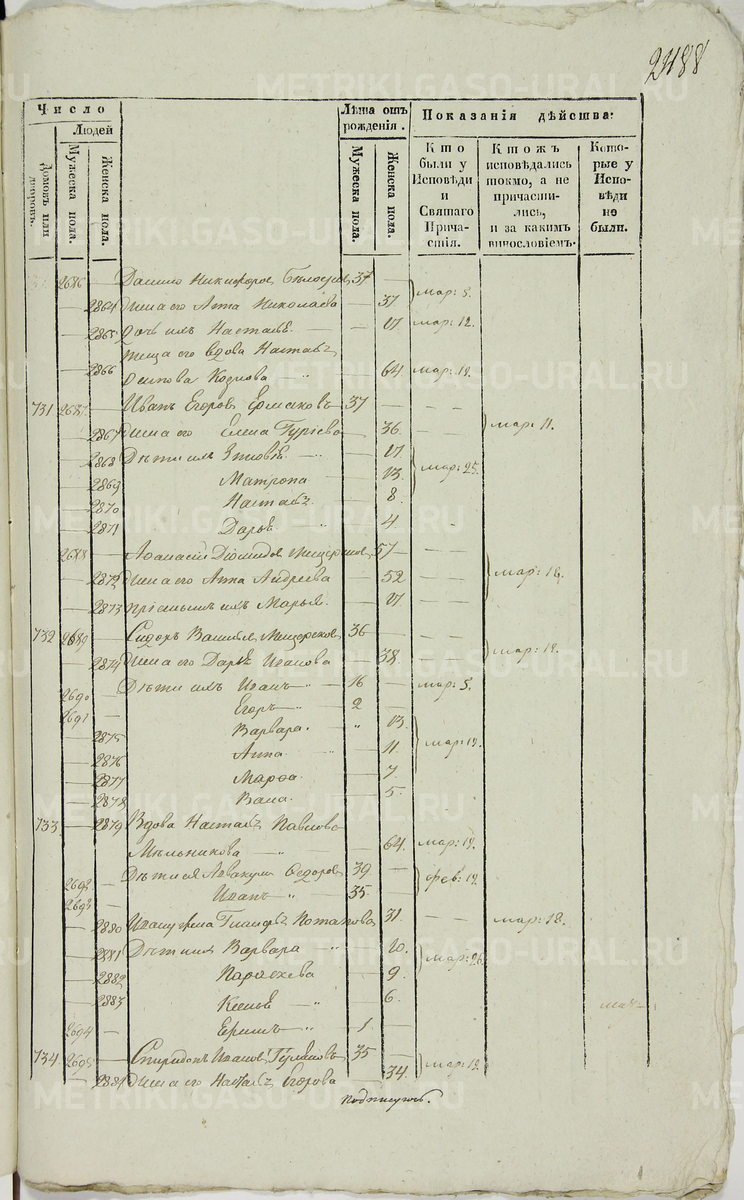 2488
METRIKI.GASO-URAL.RU
Число
Людей
Домовъ или дворовъ.
Мужеска пола.
Женска пола.
Лѣта отъ рожденія.
Мужеска пола.
Женска пола.
Показанія дѣйства:
Кто были у Исповѣди и Святаго Причастія.
Ктожъ исповѣдались токмо, а не причастились, и за какимъ винословіемъ.
Которые у Исповѣди не были.
2686 — Данило Никифоровъ 37 —
— 2864 Жена его Анна Николаева — 37 мар: 5.
— 2865 Дочь ихъ Настасья — 17 мар: 12.
теща его вдова Настасья
— 2866 Осипова Козлова — 64 мар: 19.
731 2687 — Иванъ Егоровъ Ермаковъ 37 — — —
— 2867 Жена его Елена Гурьева — 36 — — мар: 11.
— 2868 Дѣти ихъ Зиновья — 17
— 2869 Матрона — 13 мар: 25.
— 2870 Настасья — 8
— 2871 Дарья — 4
2688 — Афанасій Діомидовъ 57 — — —
— 2872 Жена его Анна Андреева — 52 — — мар: 18.
— 2873 ихъ Марья — 17 — —
732 2689 — Сидоръ Васильевъ 36 — — —
— 2874 Жена его Дарья Иванова — 38 — — мар: 19.
2690 — Дѣти ихъ Иванъ 16 — мар: 5.
2691 — Егоръ 2 —
— 2875 Варвара 13
— 2876 Анна — 11 мар: 19.
— 2877 Марфа — 7
— 2878 — 5
733 — 2879 Вдова Настасья Павлова
Мельникова — 64 мар: 19.
2692 — Дѣти ея Аввакумъ Федоровъ 39 —
2693 — Иванъ 35 фев: 19.
— 2880 Ивану жена Потапова — 31 — — мар: 18.
— 2881 Дѣти ихъ Варвара — 10
— 2882 Параскева — 9 мар: 26.
— 2883 Ксенья — 6
2694 — 1 —
734 2695 — Спиридонъ Ивановъ 35 —
— 2884 Жена его Настасья Егорова — 34 мар: 19.